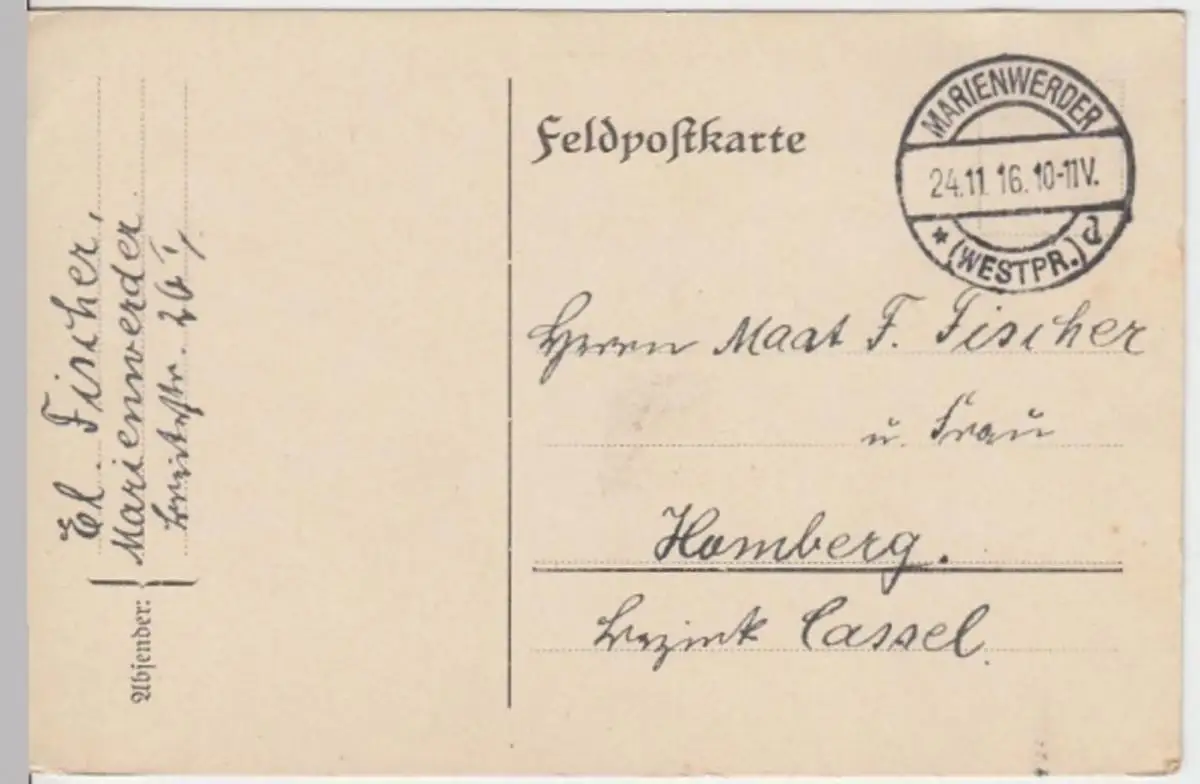 Feldpostkarte
MARIENWERDER
24.11.16.10-11V.
* (WESTPR.) d
Herrn Maat F. Fischer
u. Frau
Homberg.
Bezirk Cassel.
Absender:
El. Fischer,
Marienwerder
Breitestr. 26